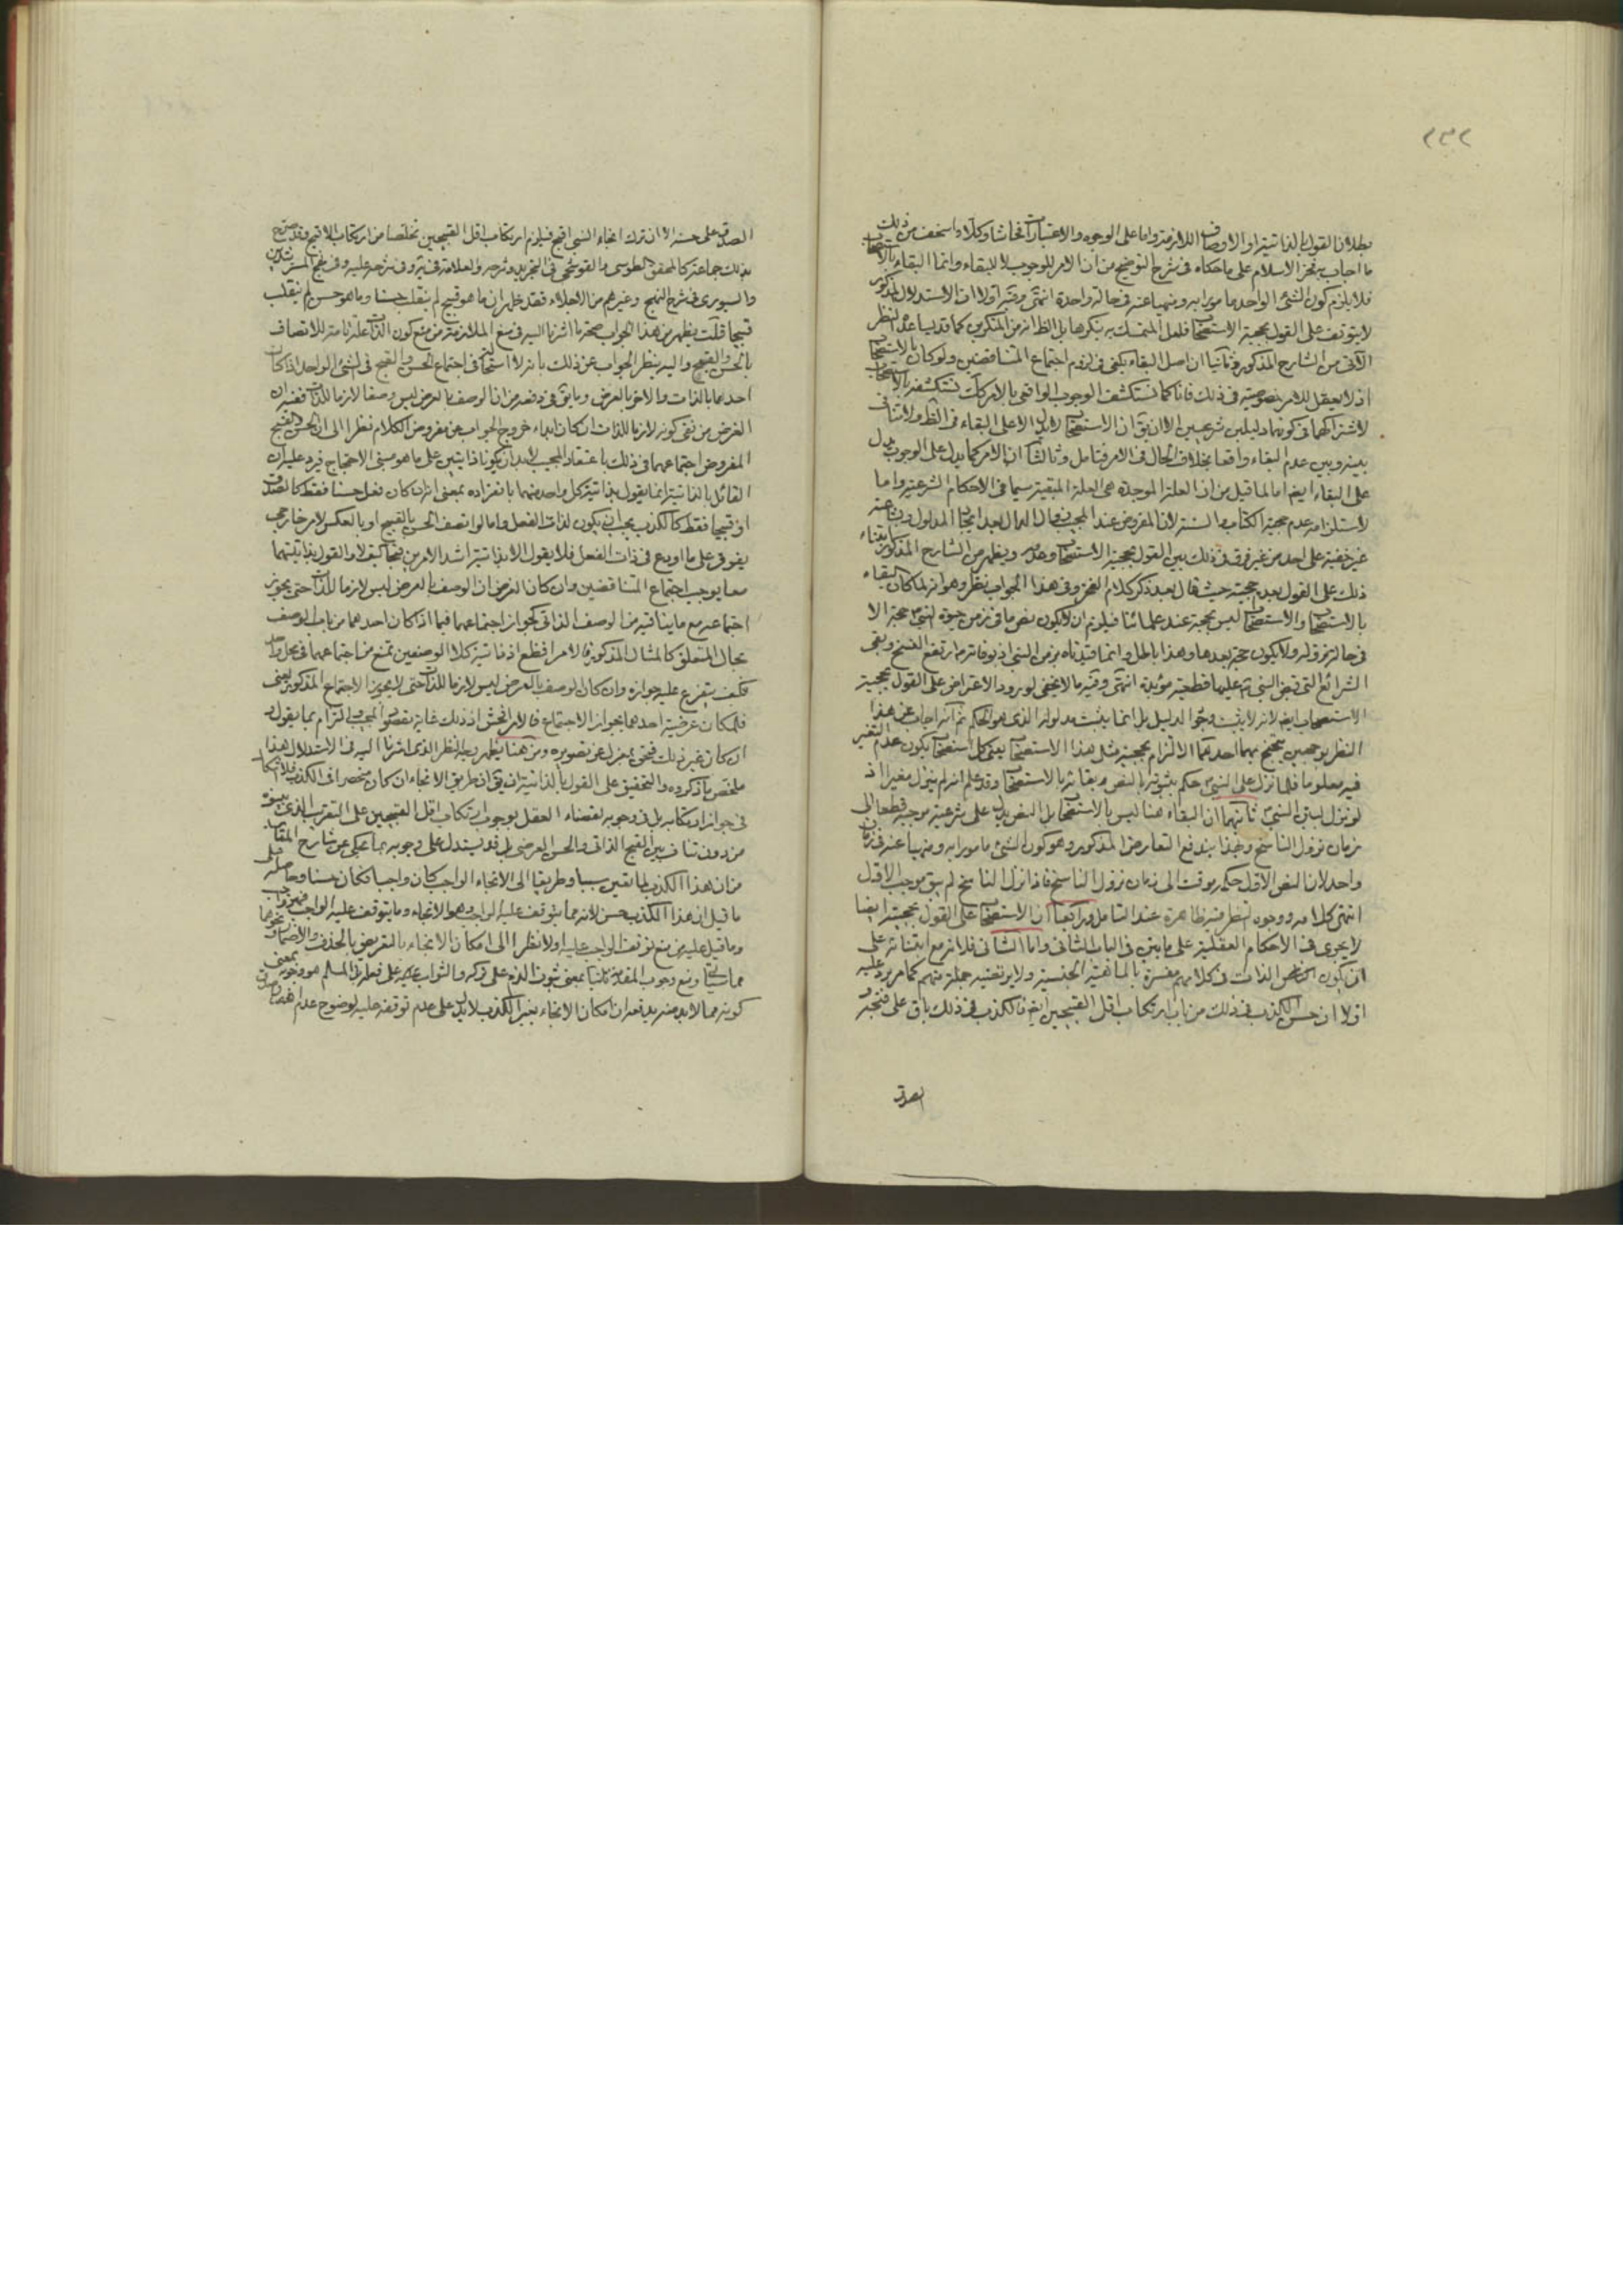 ٢٣٢
بطلان القول بالذاتية او الاوصاف اللازمة واما على الوجوه والاعتبارات فحاشا وكلا واسخف من ذلك
ما اجاب به فخر الاسلام على ما حكاه في شرح التوضيح من ان الامر للوجوب لا للبقاء وانما البقاء بالاستصحاب
فلا يلزم كون الشئ الواحد مامورا به ومنهيا عنه في حالة واحدة انتهى وفيه اولا ان الاستدلال المذكور
لا يتوقف على القول بحجية الاستصحاب فلعل المتمسك به ينكرها بل الظاهر من المنكرين كما قد يساعده النظر
الآتي من الشارح المذكور وثانيا ان اصل البقاء يكفي في لزوم اجتماع المتناقضين ولو كان بالاستصحاب
اذ لا يعقل للامر خصوصية في ذلك فانا كما نستكشف الوجوب الواقعي بالامر كك نستكشفه بالاستصحاب
لاشتراكهما في كونهما دليلين شرعيين الا ان يق ان الاستصحاب لا يدل الا على البقاء في الظ ولا تنافي
بينه وبين عدم البقاء واقعا بخلاف الحال في الامر فتامل وثالثا ان الامر كما يدل على الوجوب يدل
على البقاء ايضا لما قيل من ان العلة الموجدة هي العلة المبقية سيما في الاحكام الشرعية واما
لاستلزامه عدم حجية الكتاب والسنة لان المفروض عند المجيب زوال الدال بعد ايجاب المدلول
غير خفية على احد من غير فرق في ذلك بين القول بحجية الاستصحاب وعدمه ويظهر من الشارح المذكور ابتناء
ذلك على القول بعدم حجيته حيث قال بعد ذكر كلام الفخر وفي هذا الجواب نظر وهو انه لما كان البقاء
بالاستصحاب والاستصحاب ليس بحجة عند علمائنا فيلزم ان لا يكون نص ما في زمن حيوة النبي حجة الا
في حال نزوله ولا يكون حجة بعدها وهذا باطل وانما قيدناه بزمن النبي اذ بوفاته ارتفع النسخ وبقي
الشرائع التي قبض النبي ص عليها قطعية مؤبدة انتهى وفيه ما لا يخفى لورود الاعتراض على القول بحجية
الاستصحاب ايضا لانه لا يثبت وجود الدليل بل انما يثبت مدلوله الذي هو الحكم ثم انه اجاب عن هذا
النظر بوجهين احدهما الالتزام بحجية مثل هذا الاستصحاب يعني كل استصحاب يكون عدم التغير
فيه معلوما فلما نزل على النبي حكم بثبوته بالنص وبقائه بالاستصحاب وقد علم انه لم ينزل مغير اذ
لو نزل لبين النبي ثانيهما ان البقاء هنا ليس بالاستصحاب بل النص يدل على شرعية موجبه قطعا الى
زمان نزول الناسخ وبهذا يندفع التعارض المذكور وهو كون الشئ مامورا به ومنهيا عنه في زمان
واحد لان النص الاول حكمه موقت الى زمان نزول الناسخ فاذا نزل الناسخ لم يبق موجب الاول
انتهى كلامه ووجوه النظر فيه ظاهرة عند التامل ورابعا ان الاستصحاب على القول بحجيته ايضا
لا يجري في الاحكام العقلية على ما بين في الباب الثاني واما الثاني فلانه مع ابتنائه على
ان يكون الذات في كلامهم مفسرة بالماهية الجنسية ولا يرتضيه جملة منهم كما مر يرد عليه
اولا ان حسن الكذب في ذلك من باب ارتكاب اقل القبيحين ايضا فالكذب في ذلك باق على قبحه
الصدق
الصدق على حسنه الا ان ترك انجاء النبي اقبح فيلزم ارتكاب اقل القبيحين تخلصا من ارتكاب الاقبح وقد صرح
بذلك جماعة كالمحقق الطوسي والقوشجي في التجريد وشرحه والعلامة في وفي شرحه عليه وفي نهج المسترشدين
والسيوري في شرح النهج وغيرهم من الاجلاء فقد ظهر ان ما هو قبيح لم ينقلب حسنا وما هو حسن لم ينقلب
قبيحا قلت يظهر من هذا الجواب صحة ما اشرنا اليه في منع الملازمة من منع كون الذات علة تامة للاتصاف
بالحسن والقبح واليه ينظر الجواب عن ذلك بانه لا استحالة في اجتماع الحسن والقبح في الشئ الواحد اذا كان
احدهما بالذات والاخر بالعرض وما يق في دفعه من ان الوصف بالعرض ليس وصفا لازما للذات ففيه ان
الغرض من نفي كونه لازما للذات ان كان ابداء خروج الجواب عن مفروض الكلام نظرا الى ان الحسن والقبح
المفروض اجتماعهما في ذلك باعتقاد المجيب لا بد ان يكونا ذاتيين على ما هو مبنى الاحتجاج فيرد عليه ان
القائل بالذاتية انما يقول بذاتية كل واحد منهما بانفراده بمعنى انه ان كان فعل حسنا فقط كالصدق
او قبيحا فقط كالكذب يجب ان يكون لذات الفعل واما لو اتصف الحسن بالقبح او بالعكس لامر خارجي
يفوق على ما اودع في ذات الفعل فلا يقول الا بذاتية اشد الامرين قبحا كيف لا والقول بذاتيتهما
معا يوجب اجتماع المتناقضين وان كان الغرض ان الوصف بالعرض ليس لازما للذات حتى يجوز
اجتماعه مع ما ينافيه من الوصف الذاتي كجواز اجتماعهما فيما اذا كان احدهما من باب الوصف
بحال المتعلق كالمثال المذكور فالامر افظع اذ ذاتية كلا الوصفين تمنع من اجتماعهما في محل واحد
فكيف يتفرع عليه جوازه وان كان الوصف بالعرض ليس لازما للذات حتى لا يجوز الاجتماع المذكور يعني
فلمكان عرضية احدهما يجوز الاجتماع فالامر افحش اذ ذلك غاية مقصود المجيب والتزام بما يقول و
ان كان غير ذلك فنحن بمعزل عن تصويره ومن هنا يظهر وجه النظر الذي اشرنا اليه في الاستدلال هذا
ملخص ما ذكروه والتحقيق على القول بالذاتية ان يق ان طريق الانجاء ان كان منحصرا في الكذب فلا اشكال
في جواز ارتكابه بل في وجوبه لقضاء العقل بوجوب ارتكاب اقل القبيحين على التقريب الذي بينوه
من دون تناف بين القبح الذاتي والحسن العرضي بل قد يستدل على وجوبه بما حكي عن شارح المقاصد
من ان هذا الكذب لما تعين سببا وطريقا الى الانجاء الواجب كان واجبا فكان حسنا وحاصله
ما قيل ان هذا الكذب حسن لانه مما يتوقف عليه الواجب وهو الانجاء وما يتوقف عليه الواجب فهو واجب
وما قيل عليه من منع توقف الواجب عليه اولا نظرا الى امكان الانجاء بالتعريض بالحذف والاضمار ونحوهما
مما سيأتي ومنع وجوب المقدمة ثانيا بمعنى ثبوت الذم على تركه والثواب عليه على فعله بل المسلم هو وجوبه بمعنى
كونه مما لابد منه يدفعه ان امكان الانجاء بغير الكذب لا يدل على عدم توقفه عليه لوضوح عدم